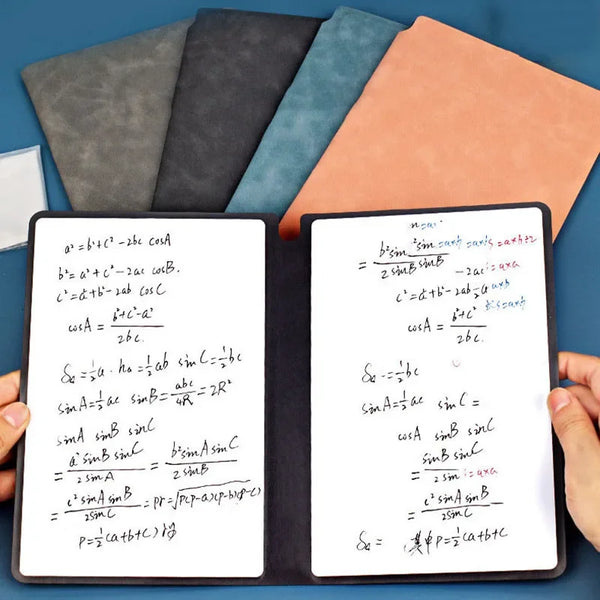 a² = b² + c² - 2bc cosA
b² = a² + c² - 2ac cosB.
c² = a² + b² - 2ab cosC
cosA = (b² + c² - a²) / 2bc.
= ½a · hₐ = ½ab sinC = ½bc
sinA = ½ac sinB = abc / 4R = 2R²
sinA sinB sinC
= a² sinB sinC / 2sinA = b² sinA sinC / 2sinB
= c² sinA sinB / 2sinC = pr = √p(p-a)(p-b)(p-c)
P = ½(a+b+c)
= b² sin² sin / 2sinB sinB = a×b
- 2ac = a×a
c² = a² + b² - 2ab
cosA = b² + c² / 2bc.
= ½bc
sinA = ½ac sinC =
cosA sinB sinC
sinB sinC
= 2sin = a×a
= c² sinA sinB / 2sinC
= 其中 P = ½(a+b+c